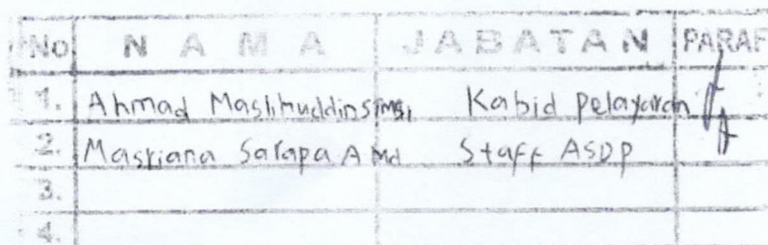 No N A M A JABATAN PARAF
1. Ahmad Maslihuddin S.MSi, Kabid Pelayaran
2. Masriana Sarapa A Md Staff ASDP
3.
4.